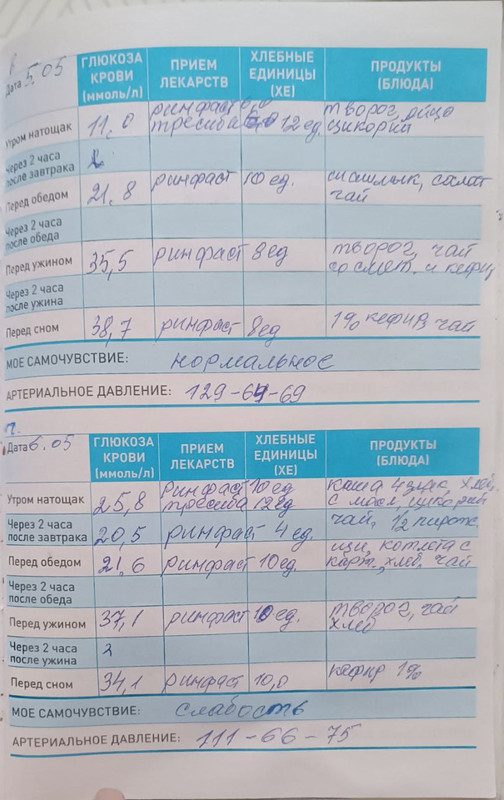 в.
Дата 5.05
ГЛЮКОЗА КРОВИ (ммоль/л)
ПРИЕМ ЛЕКАРСТВ
ХЛЕБНЫЕ ЕДИНИЦЫ (ХЕ)
ПРОДУКТЫ (БЛЮДА)
Утром натощак
11,0
ринфаст
тресиба 12 ед.
творог, яйцо
цикорий
Через 2 часа после завтрака
Перед обедом
21,8
ринфаст
10 ед.
шашлык, салат
чай
Через 2 часа после обеда
Перед ужином
35,5
ринфаст
8 ед
творог, чай
со смет. и кефир
Через 2 часа после ужина
Перед сном
38,7
ринфаст
8 ед
1% кефир, чай
МОЕ САМОЧУВСТВИЕ: нормальное
АРТЕРИАЛЬНОЕ ДАВЛЕНИЕ: 129-64-69
Дата 6.05
ГЛЮКОЗА КРОВИ (ммоль/л)
ПРИЕМ ЛЕКАРСТВ
ХЛЕБНЫЕ ЕДИНИЦЫ (ХЕ)
ПРОДУКТЫ (БЛЮДА)
Утром натощак
25,8
ринфаст 10 ед
тресиба 12 ед
каша 4 злак, хлеб,
с масл, цикорий
Через 2 часа после завтрака
20,5
ринфаст
4 ед.
чай, 1/2
Перед обедом
21,6
ринфаст
10 ед.
щи, котлета с
карт., хлеб, чай
Через 2 часа после обеда
Перед ужином
37,1
ринфаст
10 ед.
творог, чай
хлеб
Через 2 часа после ужина
Перед сном
34,1
ринфаст
10,0
кефир 1%
МОЕ САМОЧУВСТВИЕ: слабость
АРТЕРИАЛЬНОЕ ДАВЛЕНИЕ: 111-66-75